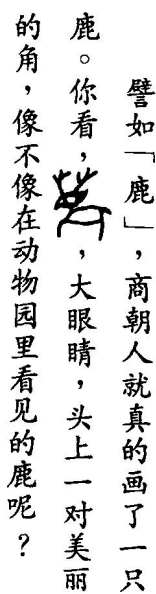 譬如「鹿」，商朝人就真的画了一只
鹿。你看，，大眼睛，头上一对美丽
的角，像不像在动物园里看见的鹿呢？